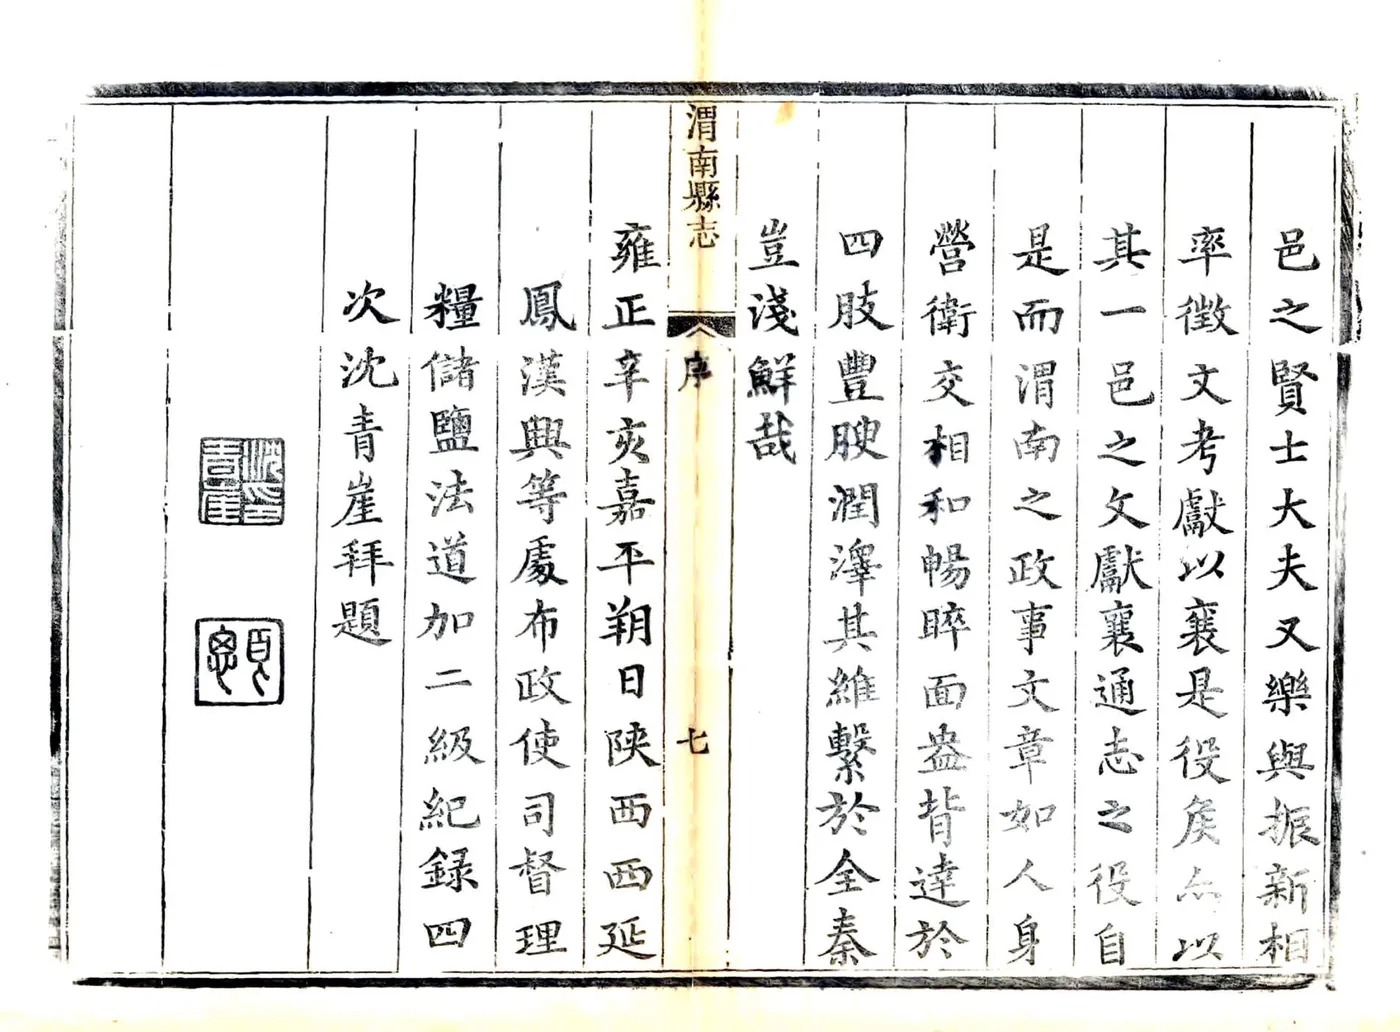 邑之賢士大夫又樂與振新相
率徵文考獻以襄是役矦亦以
其一邑之文獻襄通志之役自
是而渭南之政事文章如人身
營衛交相和暢晬面盎背達於
四肢豐腴潤澤其維繫於全秦
豈淺鮮哉
渭南縣志
序
七
雍正辛亥嘉平朔日陝西西延
鳳漢興等處布政使司督理
糧儲鹽法道加二級紀錄四
次沈青崖拜題
沈青崖印